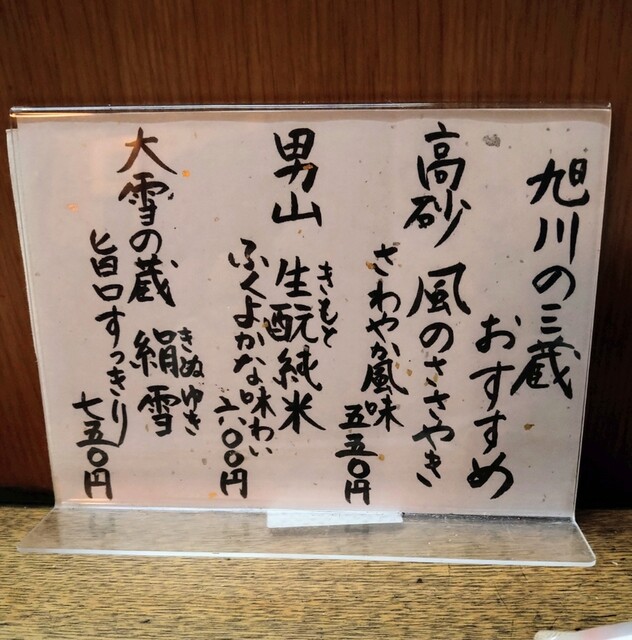 旭川の三蔵
おすすめ
高砂 風のささやき
さわやか風味 五五〇円
男山 生酛純米
きもと
ふくよかな味わい 六〇〇円
大雪の蔵 絹雪
きぬゆき
旨口すっきり 七五〇円